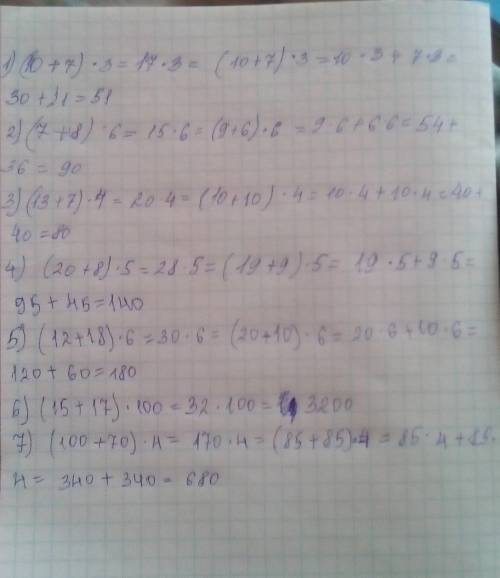 1) (10+7) · 3 = 17 · 3 = (10+7) · 3 = 10 · 3 + 7 · 3 =
30 + 21 = 51
2) (7+8) · 6 = 15 · 6 = (9+6) · 6 = 9 · 6 + 6 · 6 = 54 +
36 = 90
3) (13+7) · 4 = 20 · 4 = (10+10) · 4 = 10 · 4 + 10 · 4 = 40 +
40 = 80
4) (20+8) · 5 = 28 · 5 = (19+9) · 5 = 19 · 5 + 9 · 5 =
95 + 45 = 140
5) (12+18) · 6 = 30 · 6 = (20+10) · 6 = 20 · 6 + 10 · 6 =
120 + 60 = 180
6) (15+17) · 100 = 32 · 100 = 3200
7) (100+70) · 4 = 170 · 4 = (85+85) · 4 = 85 · 4 + 85 ·
4 = 340 + 340 = 680